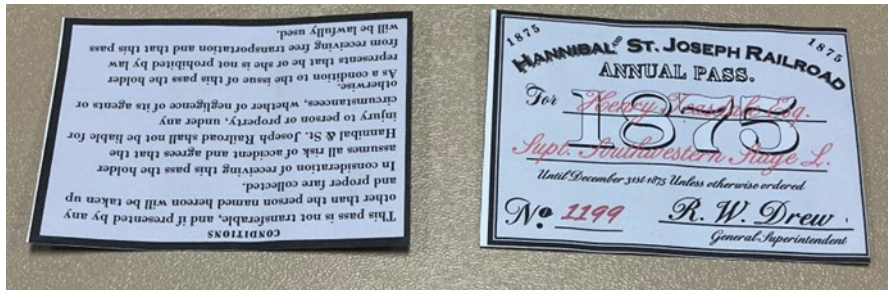 CONDITIONS
This pass is not transferable, and if presented by any
other than the person named hereon will be taken up
and proper fare collected.
In consideration of receiving this pass the holder
assumes all risk of accident and agrees that the
Hannibal & St. Joseph Railroad shall not be liable for
injury to person or property, under any
circumstances, whether of negligence of its agents or
otherwise.
As a condition to the issue of this pass the holder
represents that he or she is not prohibited by law
from receiving free transportation and that this pass
will be lawfully used.
1875 1875
HANNIBAL AND ST. JOSEPH RAILROAD
ANNUAL PASS.
1875
For Henry Teasdale Esq.
Supt. Southwestern Stage L.
Until December 31st 1875 Unless otherwise ordered
No. 1199 R. W. Drew
General Superintendent